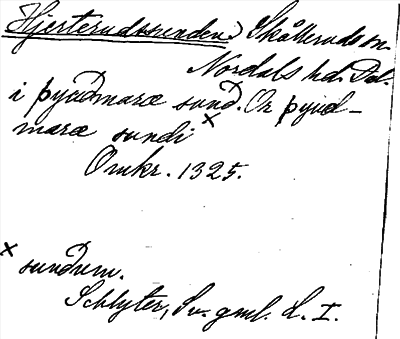 Hjerterudssunden, Skålleruds sn.
Nordals hd. Dal.
i þyuðmaræ sund. Or þyuð-
maræ sundi x
Omkr. 1325.
x sundum.
Schlyter, Sv. gml. L. I.